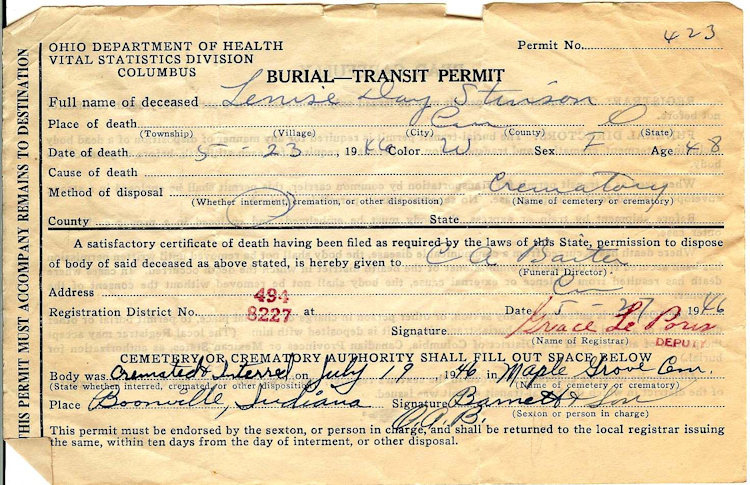 Permit No. 423
OHIO DEPARTMENT OF HEALTH
VITAL STATISTICS DIVISION
COLUMBUS
BURIAL—TRANSIT PERMIT
Full name of deceased Day Stinson
Place of death Cin O
(Township) (Village) (City) (County) (State)
Date of death 5-23, 1946 Color W Sex F Age 48
Cause of death
Method of disposal Crematory
(Whether interment, cremation, or other disposition) (Name of cemetery or crematory)
County State
A satisfactory certificate of death having been filed as required by the laws of this State, permission to dispose
of body of said deceased as above stated, is hereby given to C A
(Funeral Director)
Address Cin
494
Registration District No. 8227 at Date 5-27 1946
Signature Grace Le
(Name of Registrar) DEPUTY
CEMETERY OR CREMATORY AUTHORITY SHALL FILL OUT SPACE BELOW
Body was Cremated & Interred on July 19 1946 in Maple Grove Cem.
(State whether interred, cremated or other disposition) (Name of cemetery or crematory)
Place Boonville, Indiana Signature Barnett & Son
(Sexton or person in charge)
This permit must be endorsed by the sexton, or person in charge, and shall be returned to the local registrar issuing
the same, within ten days from the date of interment, or other disposal.
THIS PERMIT MUST ACCOMPANY REMAINS TO DESTINATION